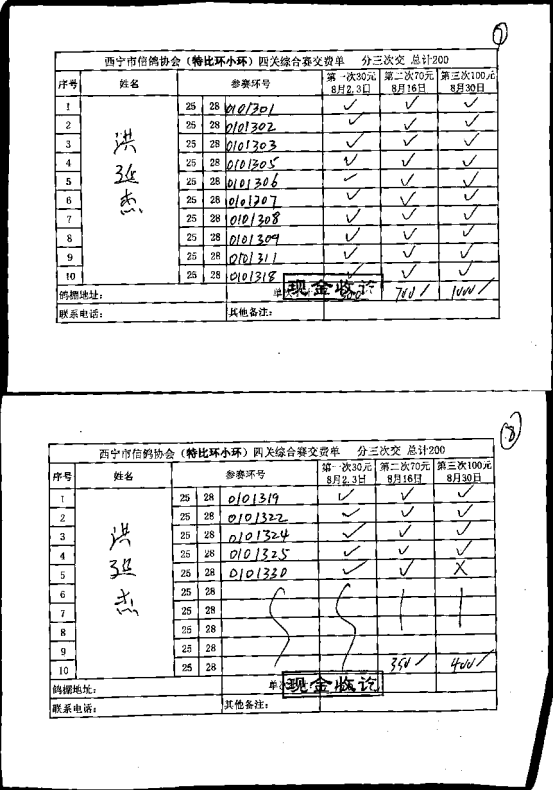 7
西宁市信鸽协会（特比环小环）四关综合赛交费单 分三次交 总计200
序号 姓名 参赛环号 第一次30元 8月2,3日 第二次70元 8月16日 第三次100元 8月30日
洪延杰
1 25 28 0101301 ✓ ✓ ✓
2 25 28 0101302 ✓ ✓ ✓
3 25 28 0101303 ✓ ✓ ✓
4 25 28 0101305 ✓ ✓ ✓
5 25 28 0101306 ✓ ✓ ✓
6 25 28 0101307 ✓ ✓ ✓
7 25 28 0101308 ✓ ✓ ✓
8 25 28 0101309 ✓ ✓ ✓
9 25 28 0101311 ✓ ✓ ✓
10 25 28 0101318 ✓ ✓ ✓
鸽棚地址： 单 现金收讫 700/ 1000/
联系电话： 其他备注：
8
西宁市信鸽协会（特比环小环）四关综合赛交费单 分三次交 总计200
序号 姓名 参赛环号 第一次30元 8月2,3日 第二次70元 8月16日 第三次100元 8月30日
洪延杰
1 25 28 0101319 ✓ ✓ ✓
2 25 28 0101322 ✓ ✓ ✓
3 25 28 0101324 ✓ ✓ ✓
4 25 28 0101325 ✓ ✓ ✓
5 25 28 0101330 ✓ ✓ X
6 25 28
7 25 28
8 25 28
9 25 28
10 25 28 350/ 400/
鸽棚地址： 单 现金收讫
联系电话： 其他备注：